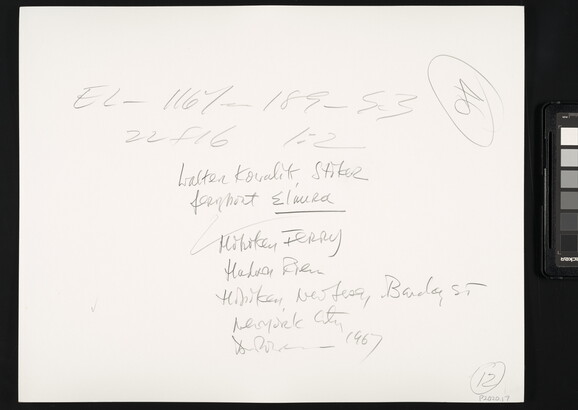 46
EL- 1167- 189- S-3
22 F16 1:2
Walter Kowalik, Stoker
ferryboat Elmira
Hoboken FERRY
Hudson River
Hoboken, New Jersey, Barclay ST
New York City
1967
12